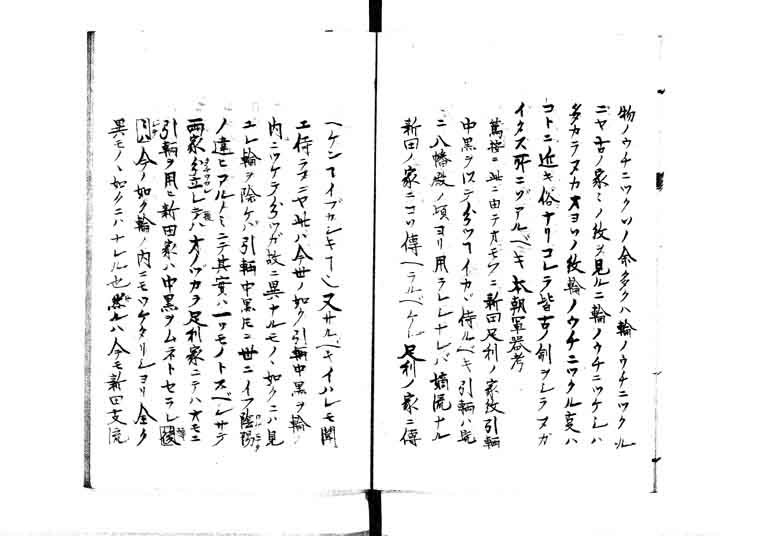 物ノウチニツクルノ余多クハ輪ノウチニツクル
ニヤ古ノ家〻ノ紋ヲ見ルニ輪ノウチニツケシハ
多カラヌカオヨソノ紋輪ノウチニツクル叓ハ
コトニ近キ俗ナリコレラ皆古ノ制ヲシラヌガ
イタス所ニゾアルベキ 本朝軍器考
篤按ニ此ニ由テオモフニ新田足利ノ家紋引輌
中黒ヲ以テ分ツテイカヾ侍ルベキ引輌ハ既
ニ八幡殿ノ頃ヨリ用ラレシナレバ嫡流ナル
新田ノ家ニコソ傳ヘラルベケレ足利ノ家ニ傳
ヘケンテイブカシキ丁也又サルベキイハレモ聞
エ侍ラズニヤ此ハ今世ノ如ク引輌中黒ヲ輪ノ
内ニツケテ分ツガ故ニ異ナルモノヽ如クニハ見
ユレ輪ヲ除ケバ引輌中黒圧ニ世ニイフ陰陽
ノ違ヒアルノミニテ其実ハ一ツモノトスベシサテ
両家分立レテハオノヅカラ足利家ニテハオモニ
引輌ヲ用ヒ新田家ハ中黒ヲムネトセラレ後
ニハ今ノ如ク輪ノ内ニモツケタリシヨリ全ク
異モノヽ如クニハナレル也然レハ今モ新田支流